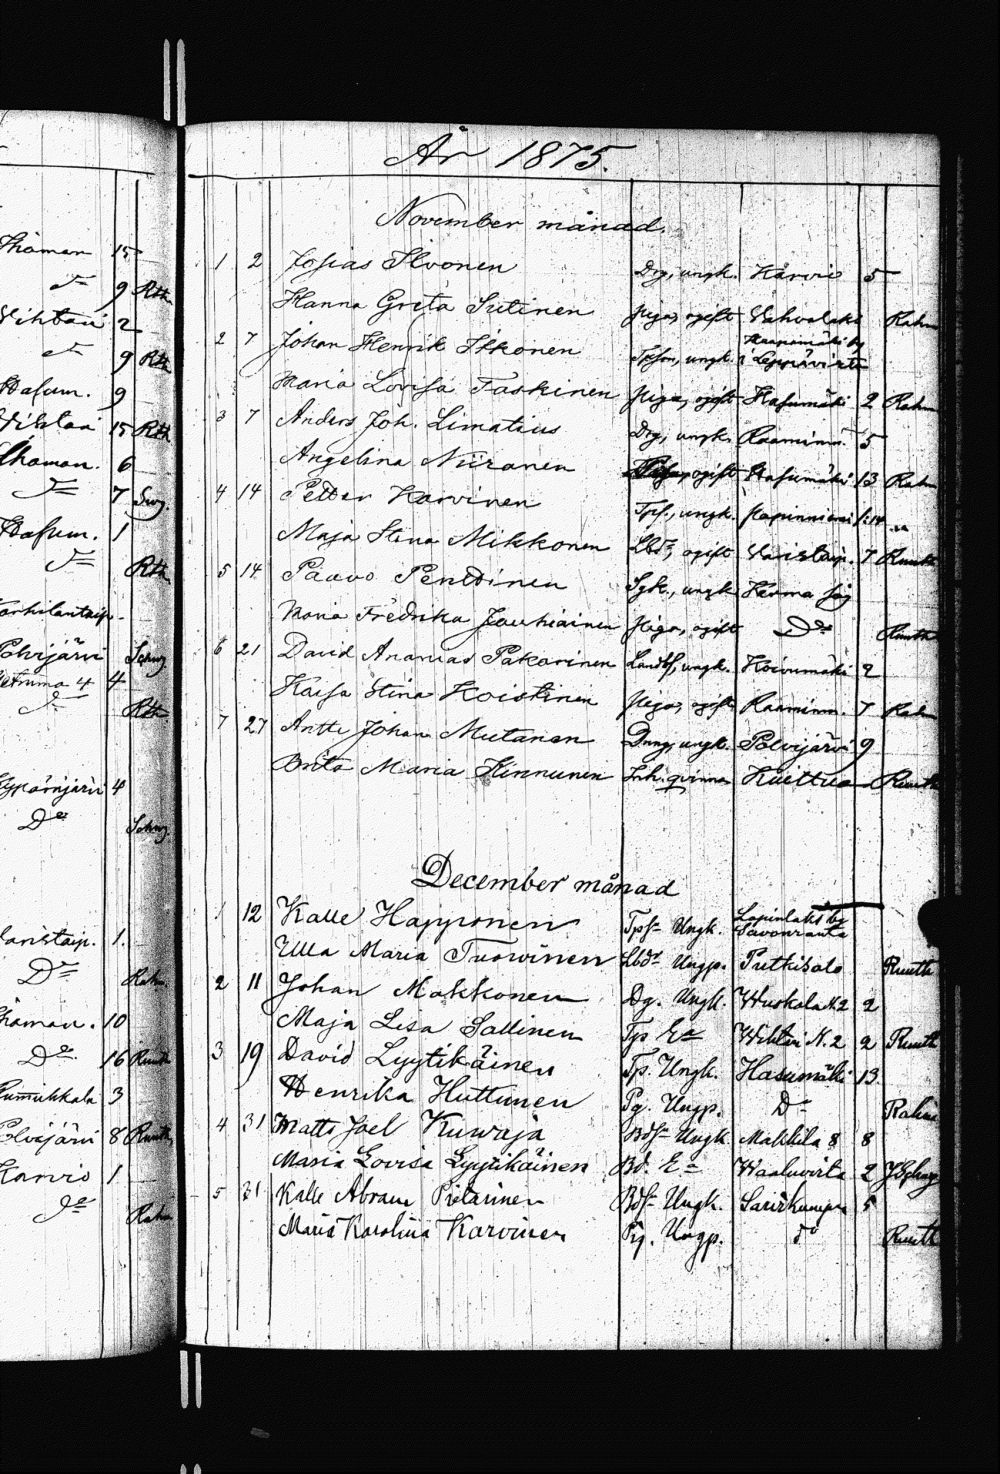 Thoman 15
9 Rth
Vihtari 2
9 Rth
Hasum. 9
Vihtari 15 Rth
Thoman. 6
7 Swg.
Hasum. 1
Rth
Polvijärvi Schwg
4
Rth
4
Do Schwg
1.
Do Rahm
Thoman. 10
Do 16 Ruuth
3
Polvijärvi 8 Ruuth
Karvio 1
do Rahm
År 1875.
November månad.
1 2 Josias Ilvonen Drg, ungk. Karvio 5
Hanna Greta Sutinen Piga, ogift Vahvalaks Rahm
Haapamäki by
2 7 Johan Henrik Ikkonen Tpson, ungk. i Leppävirta
Maria Lovisa Taskinen Piga, ogift Hasumäki 2 Rahm
3 7 Anders Joh. Limatius Drg, ungk. Raaminm. 5
Angelina Niiranen Piga, ogift Hasumäki 13 Rahm
4 14 Petter Karvinen Tps., ungk. Papinniemi 1:14
Maja Stina Mikkonen Lbdr, ogift Varistaip. 7 Ruuth
5 14 Paavo Penttinen Sgk., ungk. Kerma såg
Maria Fredrika Jauhiainen Piga, ogift Do Ruuth
6 21 David Ananias Pakarinen Landbs, ungk. Koivumäki 2
Kaisa Stina Koistinen Piga, ogift Raaminm. 7 Rahm
7 27 Antti Johan Mutanen Dreng, ungk. Polvijärvi 9
Brita Maria Kinnunen Inh. qvinna Kuettua Ruuth
December månad
Lapinlaks by
1 12 Kalle Happonen Tpsn Ungk. Savonranta
Ulla Maria Tuovinen Lbdr Ungp. Putkisalo Ruuth
2 11 Johan Makkonen Dg. Ungk. Wuokala N2 2
Maja Lisa Sallinen Tp Ea Wihtari N. 2 2 Ruuth
3 19 David Lyytikäinen Tp. Ungk. Hasumäki 13
Henrika Huttunen Pg. Ungp. Do Rahm
4 31 Matts Joel Kuwaja Bdsn Ungk. Makkila 8 8
Maria Lovisa Lyytikäinen Bd. Ea Waaluvirta 2
5 31 Kalle Abram Pietarinen Bdsn Ungk. Sarvikumpu 5
Maria Karolina Karvinen Pg. Ungp. do Ruuth